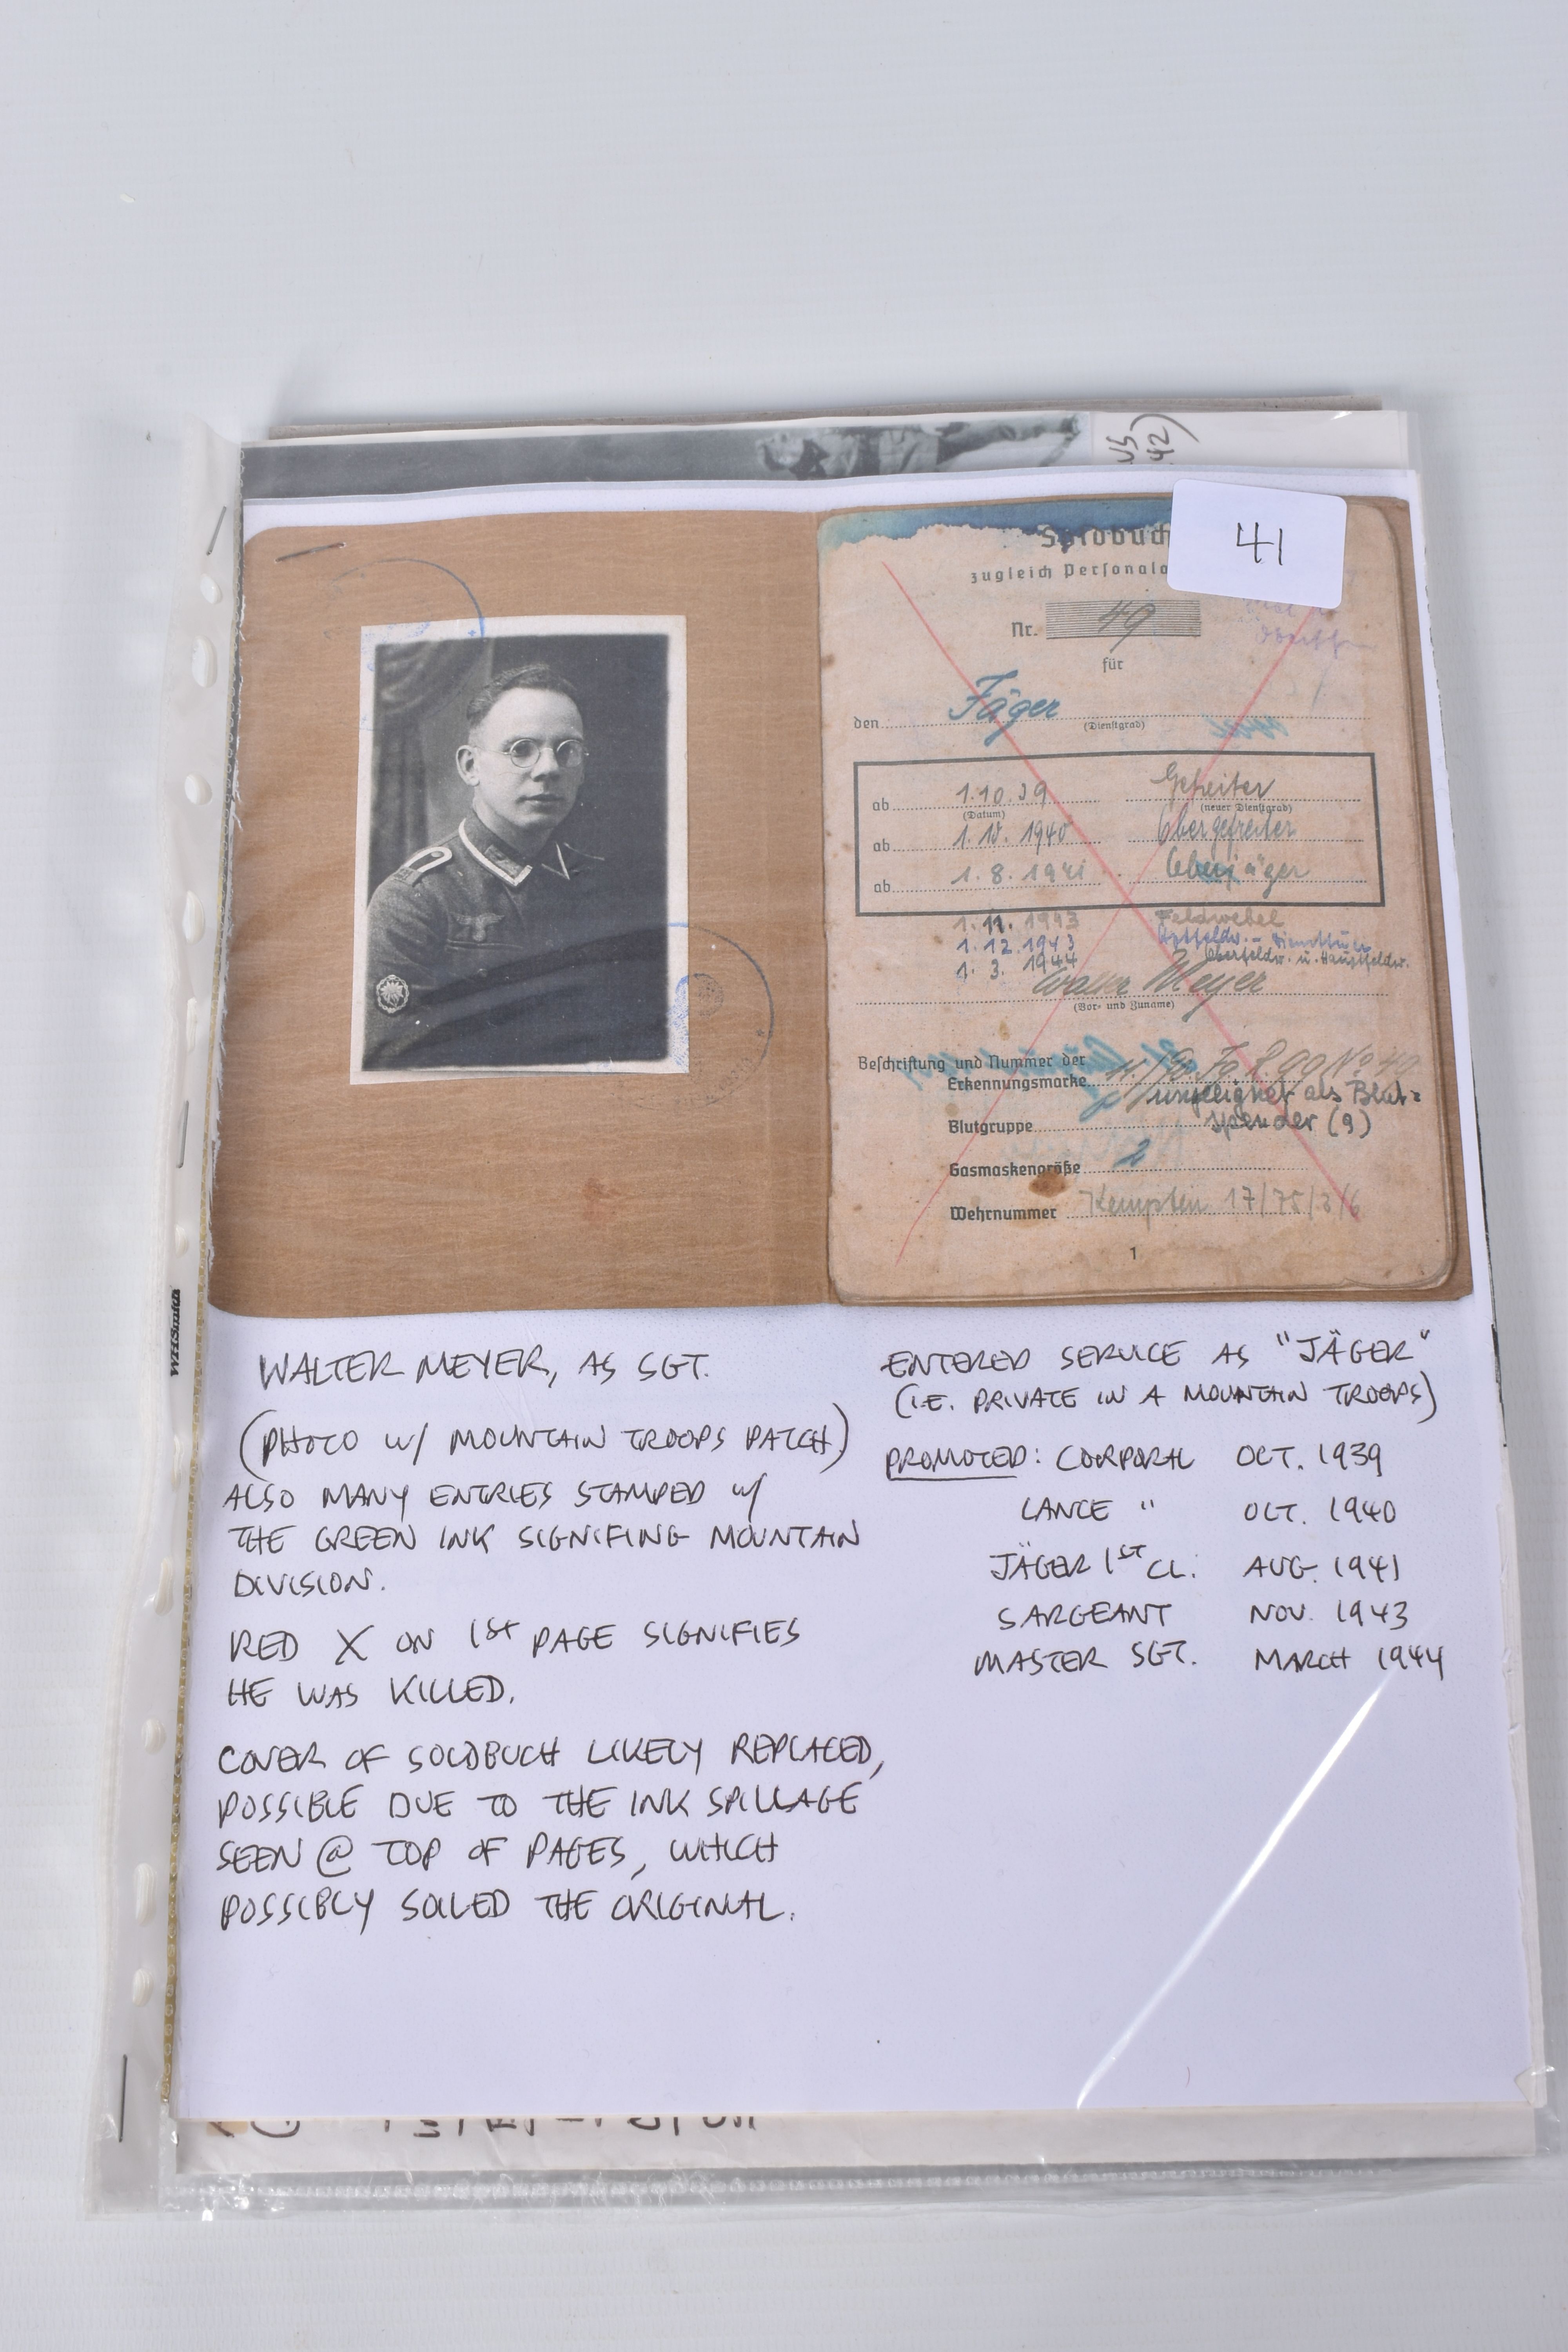 US
42)
41
Soldbuch
zugleich Personala
Nr. 49
für
den Jäger
(Dienstgrad)
ab 1.10.39 Gefreiter
(Datum) (neuer Dienstgrad)
ab 1.10.1940 Obergefreiter
ab 1.8.1941 Oberjäger
1.11.1943 Feldwebel
1.12.1943 Hptfeldw.-Diensttuer
1.3.1944 Oberfeldw. u. Hauptfeldw.
Walter Meyer
(Vor- und Zuname)
Beschriftung und Nummer der
Erkennungsmarke No 49
ungeeignet als Blut=
Blutgruppe spender (9)
Gasmaskengröße 2
Wehrnummer Kempten 17/75/3/6
1
WHSmith
WALTER MEYER, AS SGT.
(PHOTO W/ MOUNTAIN TROOPS PATCH)
ALSO MANY ENTRIES STAMPED W/
THE GREEN INK SIGNIFING MOUNTAIN
DIVISION.
RED X ON 1ST PAGE SIGNIFIES
HE WAS KILLED.
COVER OF SOLDBUCH LIKELY REPLACED,
POSSIBLE DUE TO THE INK SPILLAGE
SEEN @ TOP OF PAGES, WHICH
POSSIBLY SOILED THE ORIGINAL.
ENTERED SERVICE AS "JÄGER"
(I.E. PRIVATE IN A MOUNTAIN TROOPS)
PROMOTED: CORPORAL OCT. 1939
LANCE " OCT. 1940
JÄGER 1ST CL. AUG. 1941
SARGEANT NOV. 1943
MASTER SGT. MARCH 1944